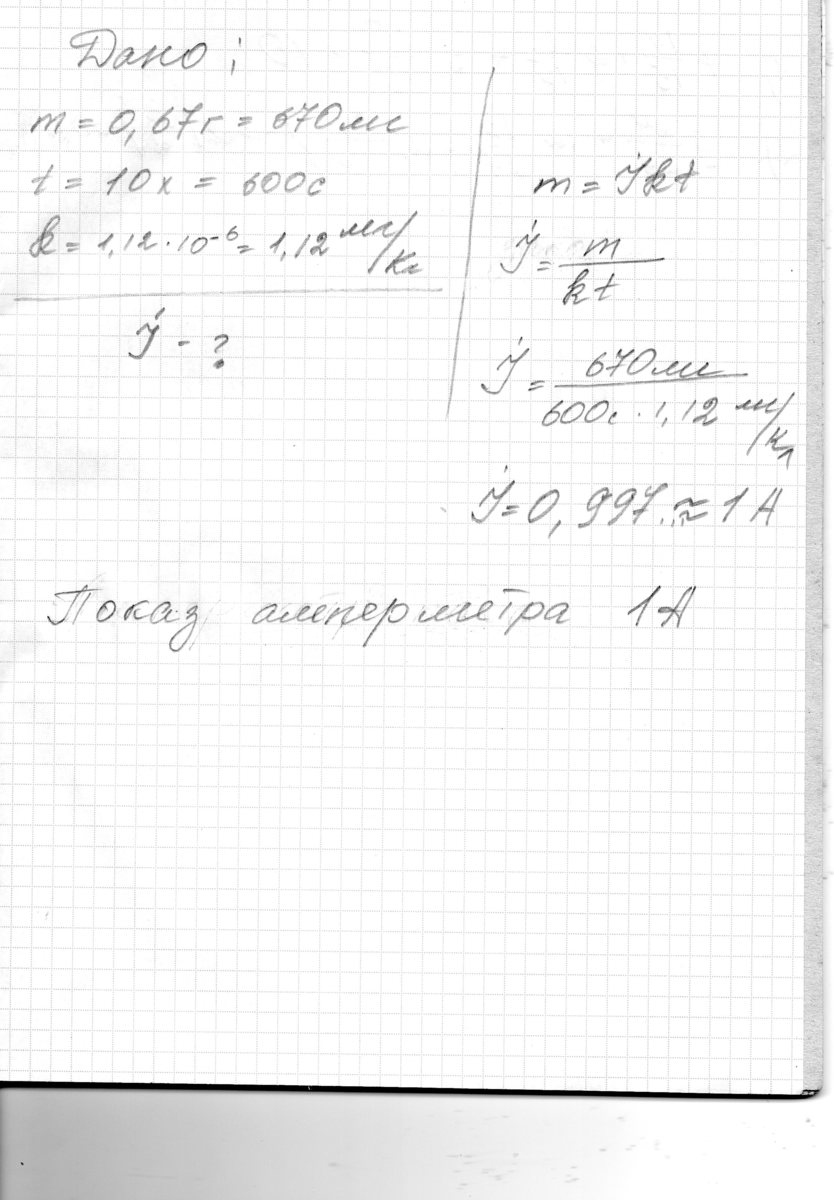 Дано:
m = 0,67г = 670мг
t = 10х = 600с
k = 1,12·10⁻⁶ = 1,12 мг/Кл
I - ?
m = Ikt
I = m/kt
I = 670мг/600с · 1,12 мг/Кл
I = 0,997.. ≈ 1А
Показ амперметра 1А